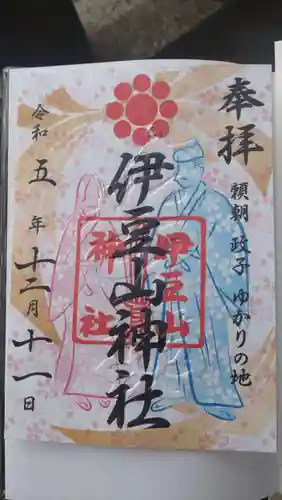 奉拝
頼朝 政子 ゆかりの地
伊豆山神社
伊豆山
神社
令和五年十二月十一日